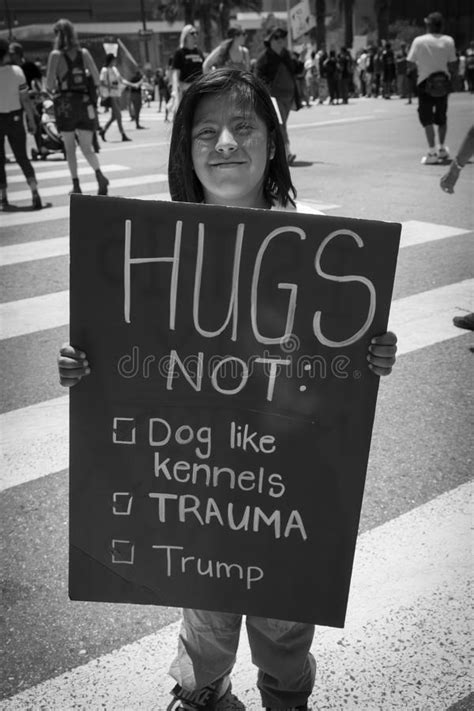 HUGS
NOT:
Dog like
kennels
TRAUMA
Trump
dreamstime.com